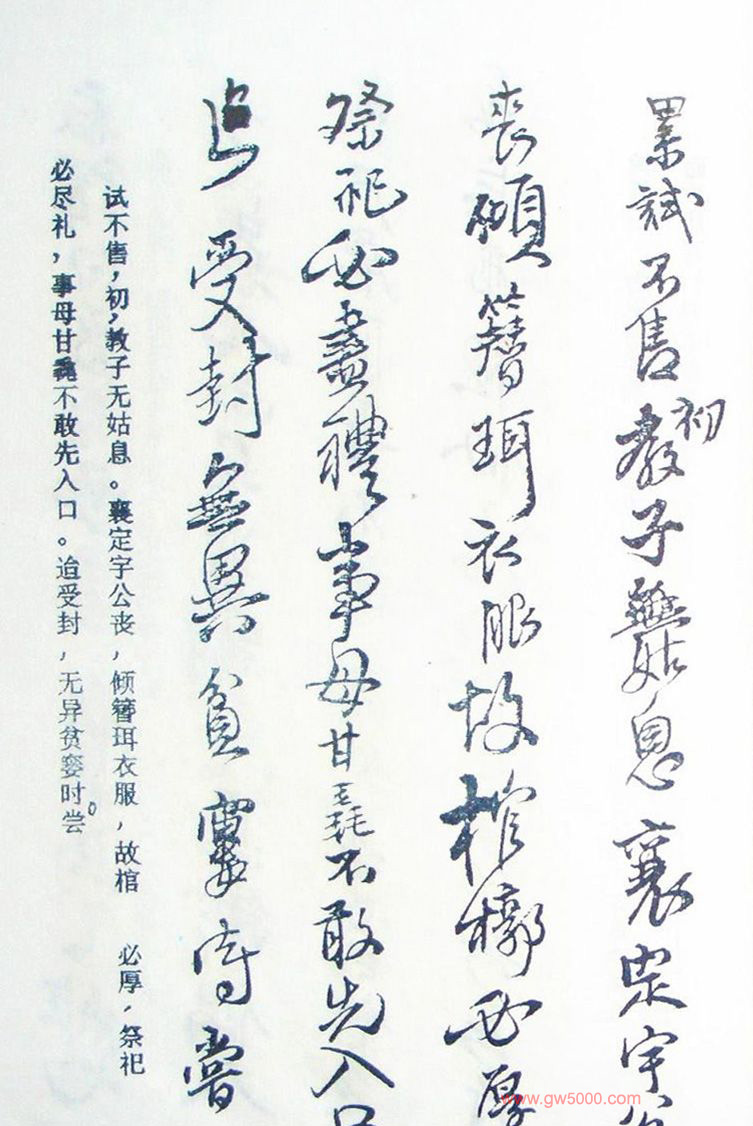 累試不售初教子無姑息襄定宇公
喪傾簪珥衣服故棺槨必厚
祭祀必盡禮事母甘毳不敢先入口
迨受封無異貧窶時嘗
试不售,初,教子无姑息。襄定字公丧,倾簪珥衣服,故棺 必厚,祭祀
必尽礼,事母甘毳不敢先入口。迨受封,无异贫窭时尝。
www.gw5000.com